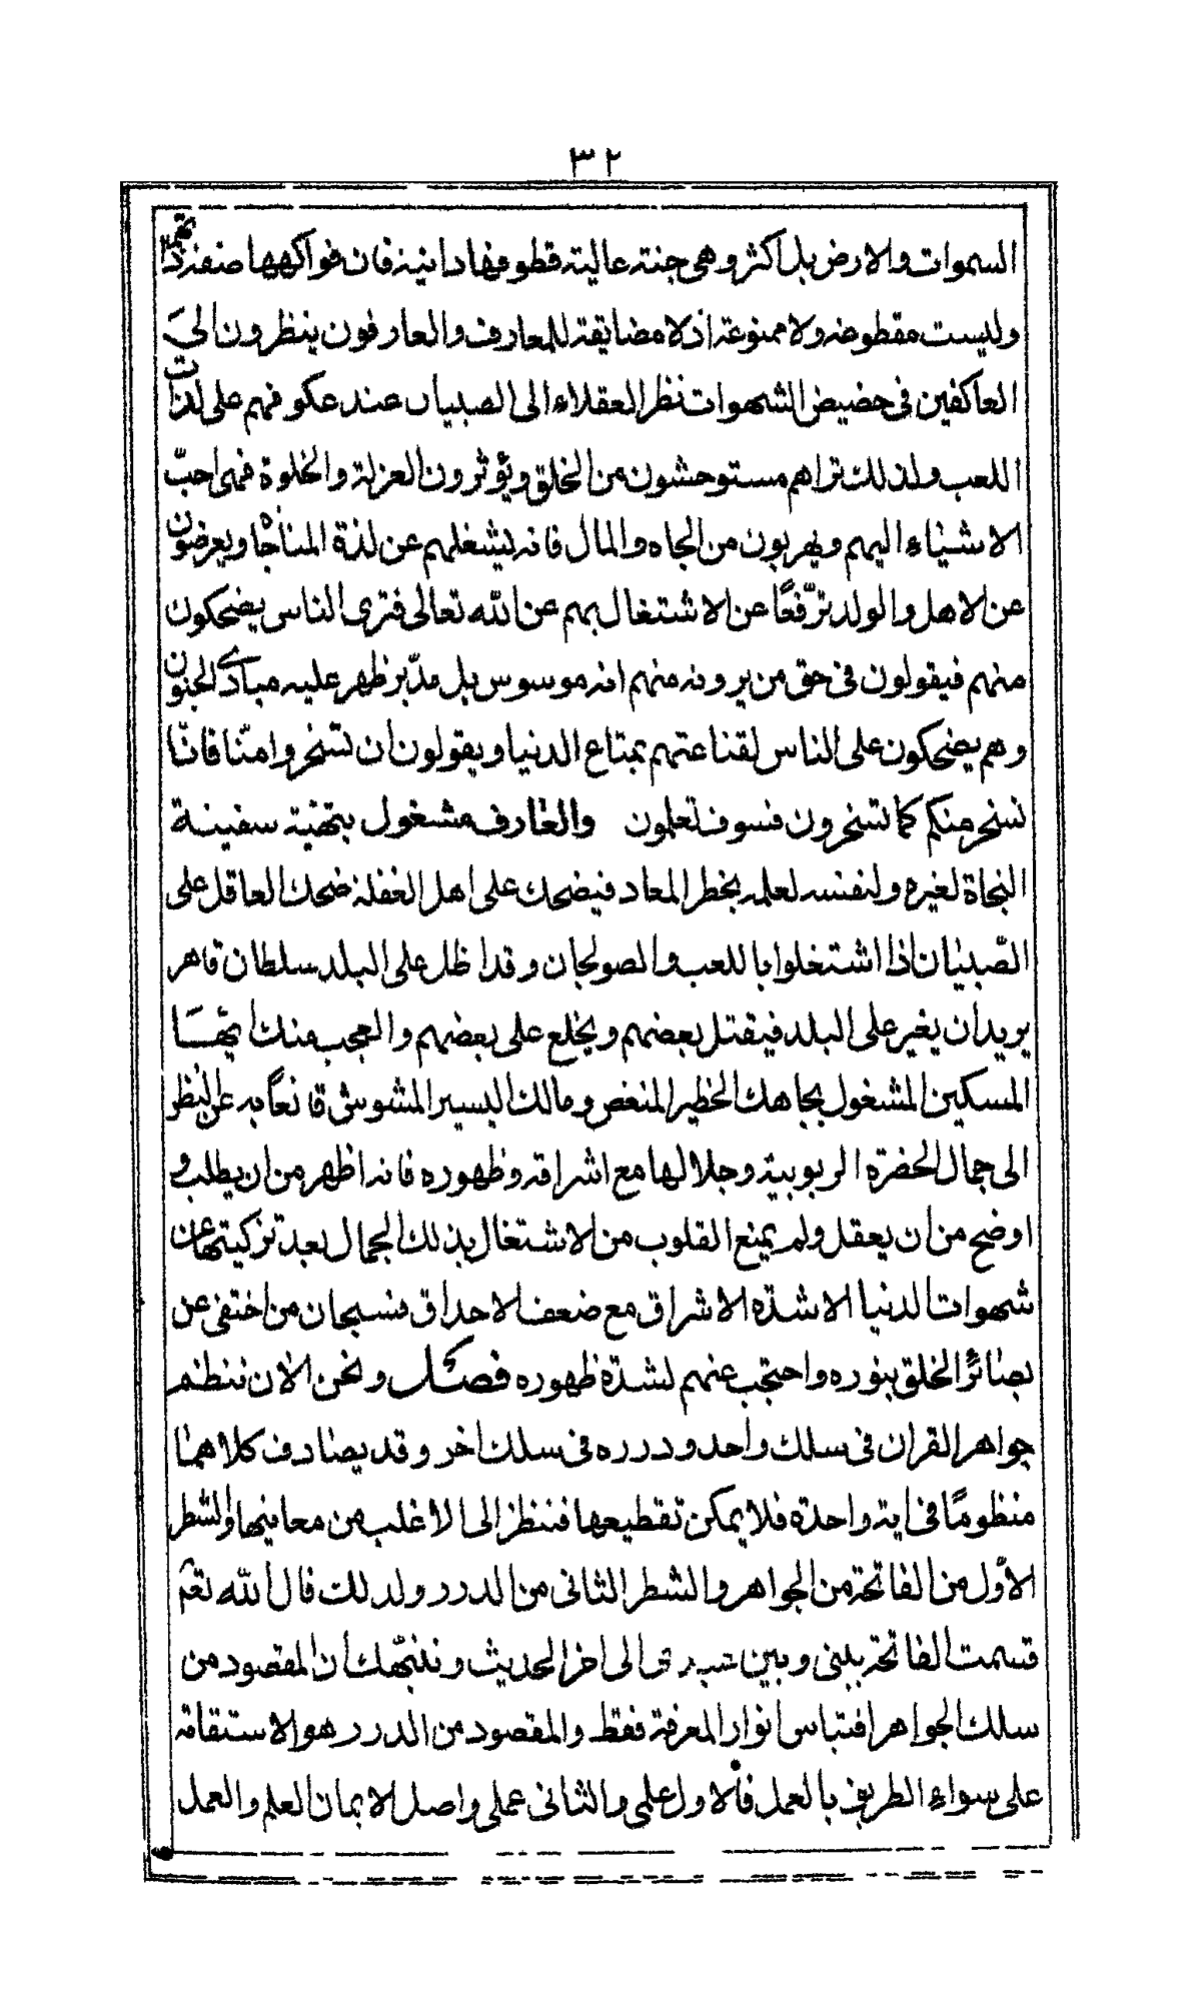 ٣٢
السموات والارض بل اكثر وهى جنة عالية قطوفها دانية فان فواكهها صفة ذاتهم
وليست مقطوعة ولا ممنوعة اذ لا مضايقة للمعارف والعارفون ينظرون الى
العاكفين فى حضيض الشهوات نظر العقلاء الى الصبيان عند عكوفهم على لذات
اللعب ولذلك تراهم مستوحشون من الخلق ويؤثرون العزلة والخلوة فهى احبّ
الاشياء اليهم ويهربون من الجاه والمال فانه يشغلهم عن لذة المناجاة ويعرضون
عن الاهل والولد ترّفعًا عن الاشتغال بهم عن الله تعالى فترى الناس يضحكون
منهم فيقولون فى حق من يرونه منهم انه موسوس بل مدّبر ظهر عليه مبادى الجنون
وهم يضحكون على الناس لقناعتهم بمتاع الدنيا ويقولون ان تسخروا منّا فانّا
نسخر منكم كما تسخرون فسوف تعلمون والعارف مشغول بتهيئة سفينة
النجاة لغيره ولنفسه لعلمه بخطر المعاد فيضحك على اهل الغفلة ضحك العاقل على
الصّبيان اذا اشتغلوا باللعب والصولجان وقد اظل على البلد سلطان قاهر
يريد ان يغير على البلد فيقتل بعضهم ويخلع على بعضهم والعجب منك ايّها
المسكين المشغول بجاهك الخطير المنغص ومالك اليسير المشوش قانعًا به عن النظر
الى جمال الحضرة الربوبية وجلالها مع اشراقه وظهوره فانه اظهر من ان يطلب و
اوضح من ان يعقل ولم يمنع القلوب من الاشتغال بذلك الجمال بعد تزكيتها عن
شهوات الدنيا الا شدّة الاشراق مع ضعف الاحداق فسبحان من اختفى عن
بصائر الخلق بنوره واحتجب عنهم لشدّة ظهوره فصل ونحن الان ننظم
جواهر القران فى سلك واحد ودرره فى سلك اخر وقد يصادف كلاهما
منظومًا فى اية واحدة فلا يمكن تقطيعها فننظر الى الاغلب من معانيها والشطر
الاوّل من الفاتحة من الجواهر والشطر الثانى من الدرر ولذلك قال الله تعم
قسمت الفاتحة بينى وبين عبدى الى اخر الحديث وننبّهك ان المقصود من
سلك الجواهر اقتباس انوار المعرفة فقط والمقصود من الدرر هو الاستقامة
على سواء الطريق بالعمل فالاول علمى والثانى عملى واصل الايمان العلم والعمل